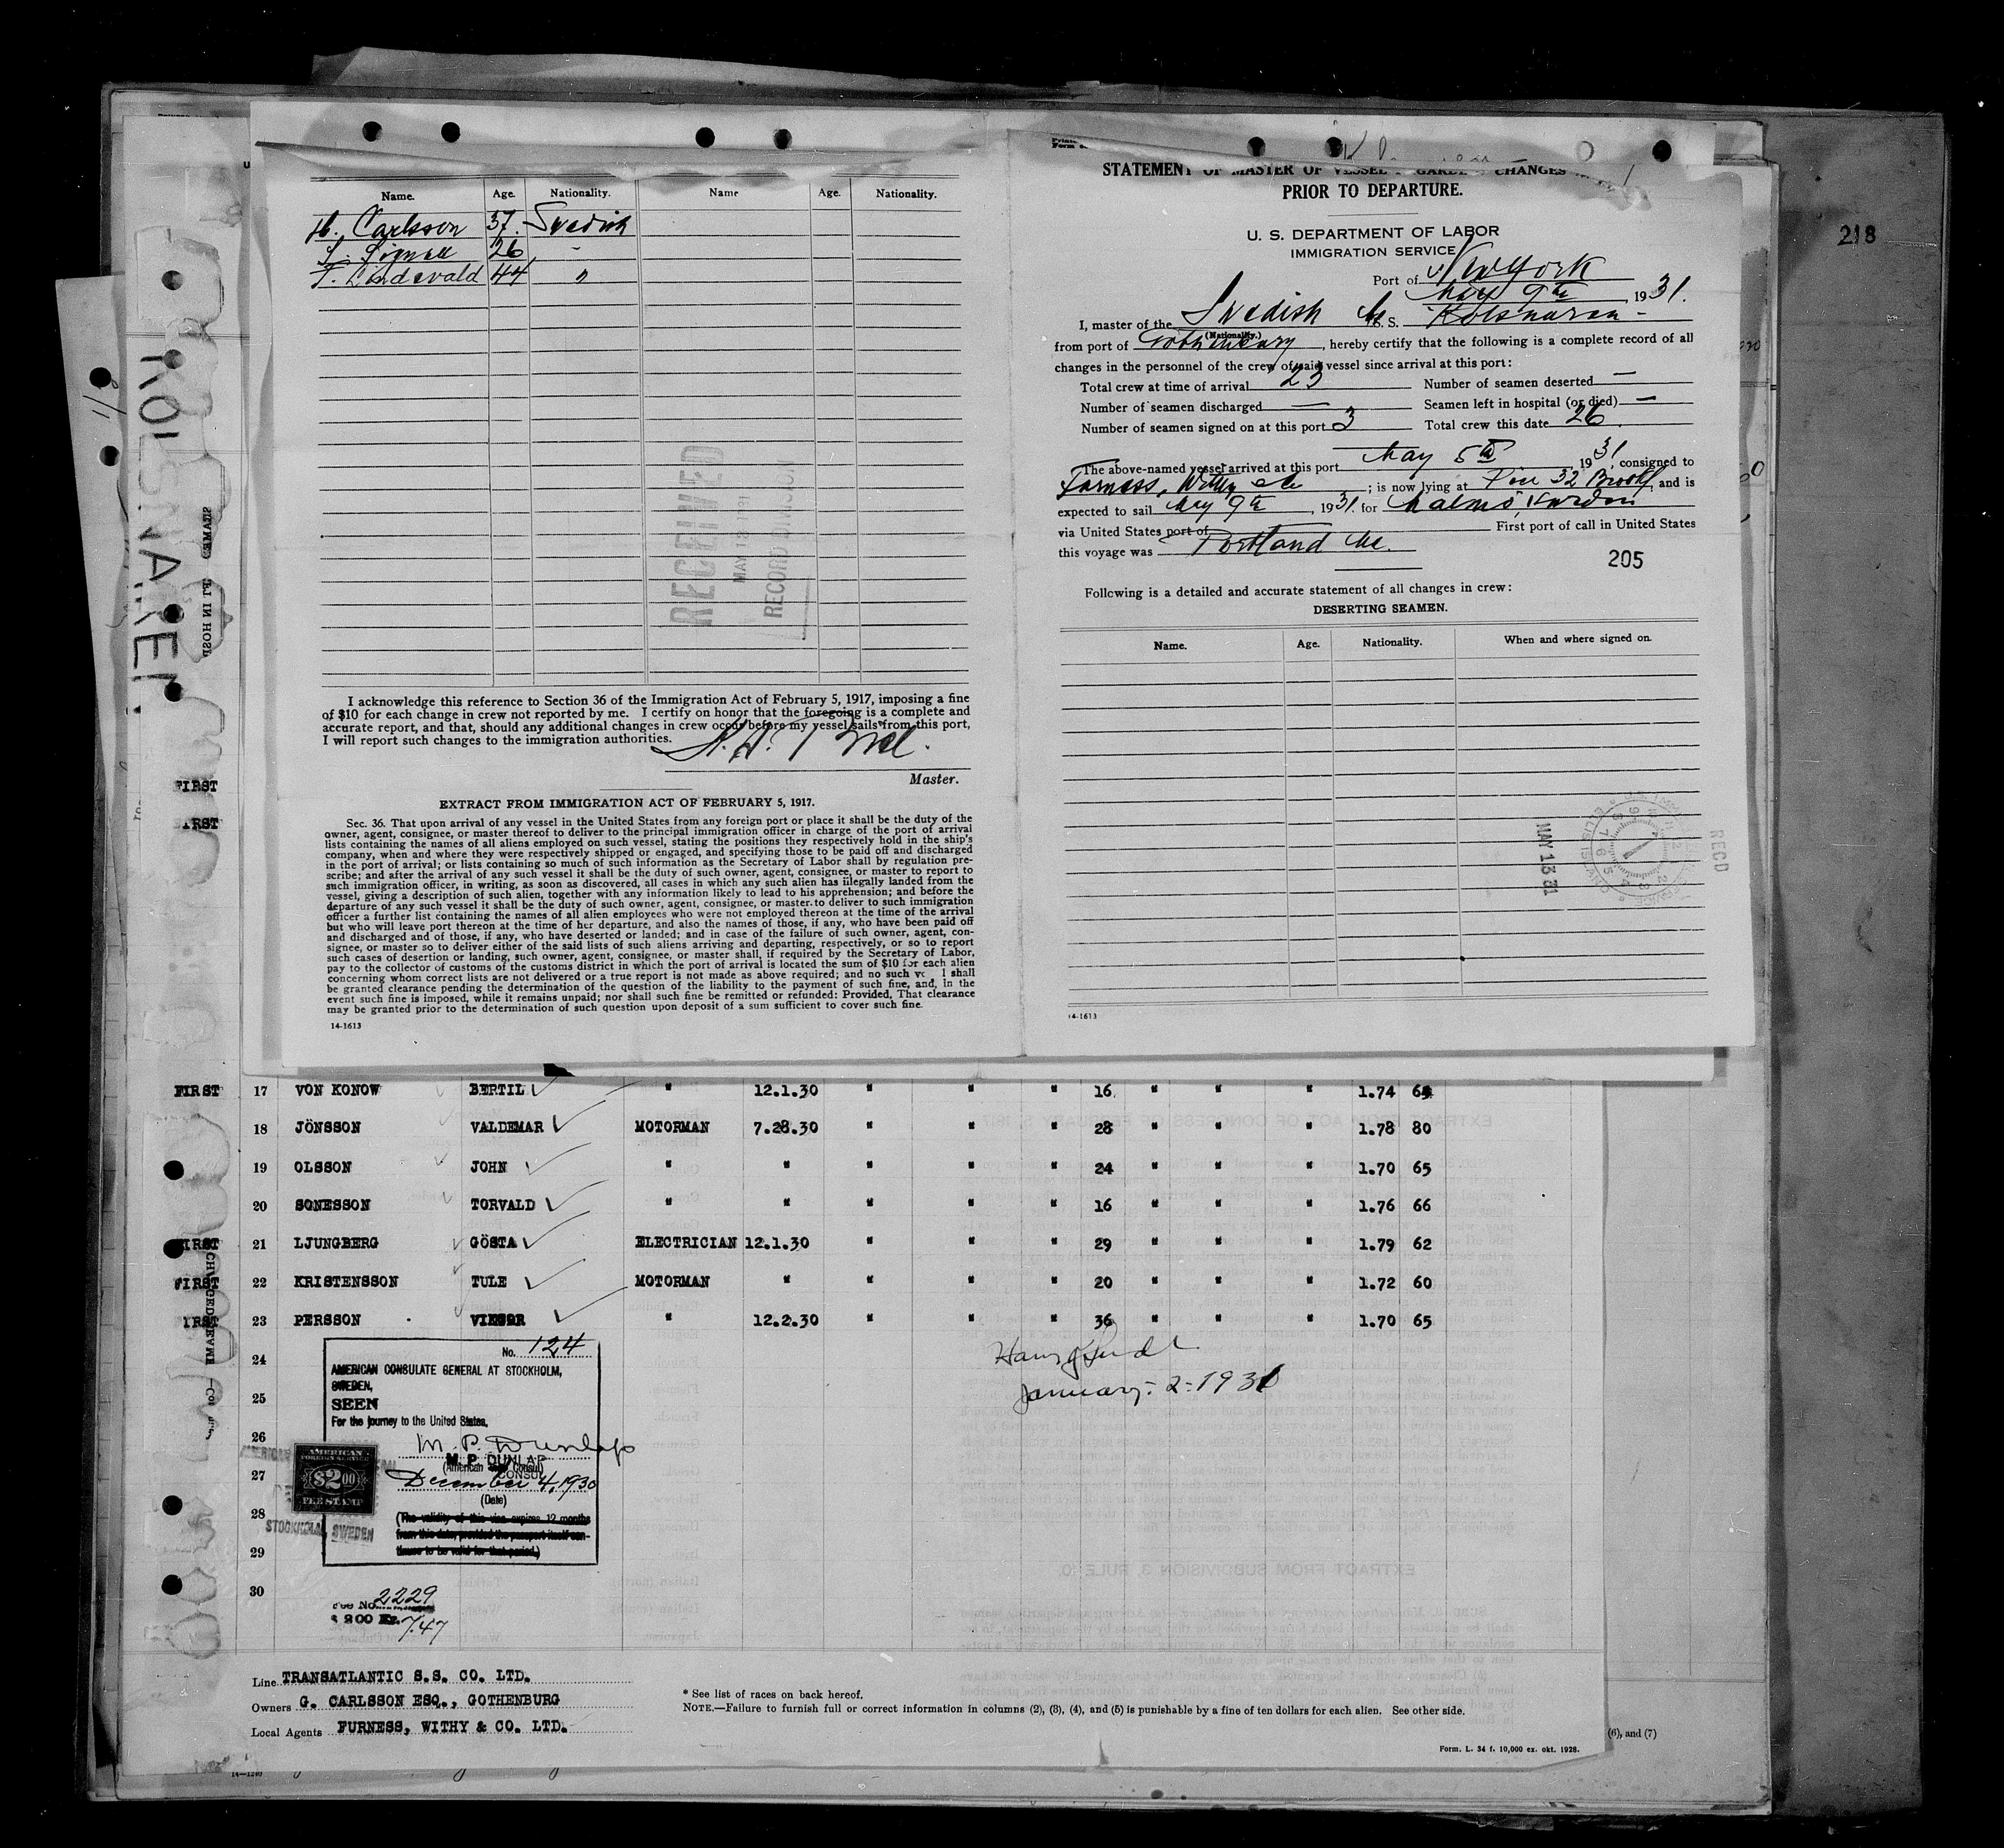 218
KOLSNAREN
Name. Age. Nationality. Name Age. Nationality.
H. Carlsson 37. Swedish
26 "
F. Lindevald 44 "
RECEIVED
MAY 13 1931
RECORD DIVISION
I acknowledge this reference to Section 36 of the Immigration Act of February 5, 1917, imposing a fine
of $10 for each change in crew not reported by me. I certify on honor that the foregoing is a complete and
accurate report, and that, should any additional changes in crew occur before my vessel sails from this port,
I will report such changes to the immigration authorities.
Master.
EXTRACT FROM IMMIGRATION ACT OF FEBRUARY 5, 1917.
Sec. 36. That upon arrival of any vessel in the United States from any foreign port or place it shall be the duty of the
owner, agent, consignee, or master thereof to deliver to the principal immigration officer in charge of the port of arrival
lists containing the names of all aliens employed on such vessel, stating the positions they respectively hold in the ship's
company, when and where they were respectively shipped or engaged, and specifying those to be paid off and discharged
in the port of arrival; or lists containing so much of such information as the Secretary of Labor shall by regulation pre-
scribe; and after the arrival of any such vessel it shall be the duty of such owner, agent, consignee, or master to report to
such immigration officer, in writing, as soon as discovered, all cases in which any such alien has illegally landed from the
vessel, giving a description of such alien, together with any information likely to lead to his apprehension; and before the
departure of any such vessel it shall be the duty of such owner, agent, consignee, or master to deliver to such immigration
officer a further list containing the names of all alien employees who were not employed thereon at the time of the arrival
but who will leave port thereon at the time of her departure, and also the names of those, if any, who have been paid off
and discharged and of those, if any, who have deserted or landed; and in case of the failure of such owner, agent, con-
signee, or master so to deliver either of the said lists of such aliens arriving and departing, respectively, or so to report
such cases of desertion or landing, such owner, agent, consignee, or master shall, if required by the Secretary of Labor,
pay to the collector of customs of the customs district in which the port of arrival is located the sum of $10 for each alien
concerning whom correct lists are not delivered or a true report is not made as above required; and no such ve l shall
be granted clearance pending the determination of the question of the liability to the payment of such fine, and, in the
event such fine is imposed, while it remains unpaid; nor shall such fine be remitted or refunded: Provided, That clearance
may be granted prior to the determination of such question upon deposit of a sum sufficient to cover such fine.
14-1613
STATEMENT OF MASTER OF VESSEL REGARDING CHANGES
PRIOR TO DEPARTURE.
U. S. DEPARTMENT OF LABOR
IMMIGRATION SERVICE
Port of New York
May 9th, 1931.
I, master of the Swedish M. S. "Kolsnaren"
(Nationality.)
from port of Gothenburg, hereby certify that the following is a complete record of all
changes in the personnel of the crew of said vessel since arrival at this port:
Total crew at time of arrival 23 Number of seamen deserted —
Number of seamen discharged — Seamen left in hospital (or died) —
Number of seamen signed on at this port 3 Total crew this date 26.
The above-named vessel arrived at this port May 5th 1931, consigned to
Furness, Withy & Co; is now lying at Pier 32 Brookl, and is
expected to sail May 9th, 1931. for Malmö, Sweden
via United States port of First port of call in United States
this voyage was Portland Me.
205
Following is a detailed and accurate statement of all changes in crew:
DESERTING SEAMEN.
Name. Age. Nationality. When and where signed on.
RECD
MAY 13 31
ELLIS ISLAND
14-1613
FIRST
FIRST
FIRST 17 VON KONOW BERTIL " 12.1.30 " " " 16 " " " 1.74 64
18 JÖNSSON VALDEMAR MOTORMAN 7.28.30 " " " 28 " " " 1.78 80
19 OLSSON JOHN " " " " " 24 " " " 1.70 65
20 SONESSON TORVALD " " " " " 16 " " " 1.76 66
FIRST 21 LJUNGBERG GÖSTA ELECTRICIAN 12.1.30 " " " 29 " " " 1.79 62
FIRST 22 KRISTENSSON TULE MOTORMAN " " " " 20 " " " 1.72 60
FIRST 23 PERSSON VIKTOR " 12.2.30 " " " 36 " " " 1.70 65
24
25
26
27
28
29
30
No. 124
AMERICAN CONSULATE GENERAL AT STOCKHOLM,
SWEDEN,
SEEN
For the journey to the United States.
M. P. Dunlap
M. P. DUNLAP
(American Consul)
CONSUL
December 4, 1930
(Date)
(The validity of this visa expires 12 months
from this date, provided the passport itself con-
tinues to be valid for that period.)
AMERICAN
FOREIGN SERVICE
$2.00
FEE STAMP
STOCKHOLM, SWEDEN
January - 2 - 1931
Fee No. 2229
$ 2.00 Kr. 7.47
Line TRANSATLANTIC S.S. CO. LTD.
Owners G. CARLSSON ESQ., GOTHENBURG
Local Agents FURNESS, WITHY & CO. LTD.
* See list of races on back hereof.
NOTE.—Failure to furnish full or correct information in columns (2), (3), (4), and (5) is punishable by a fine of ten dollars for each alien. See other side.
Form. L. 34 f. 10,000 ex. okt. 1928.
(6), and (7)
14—1240